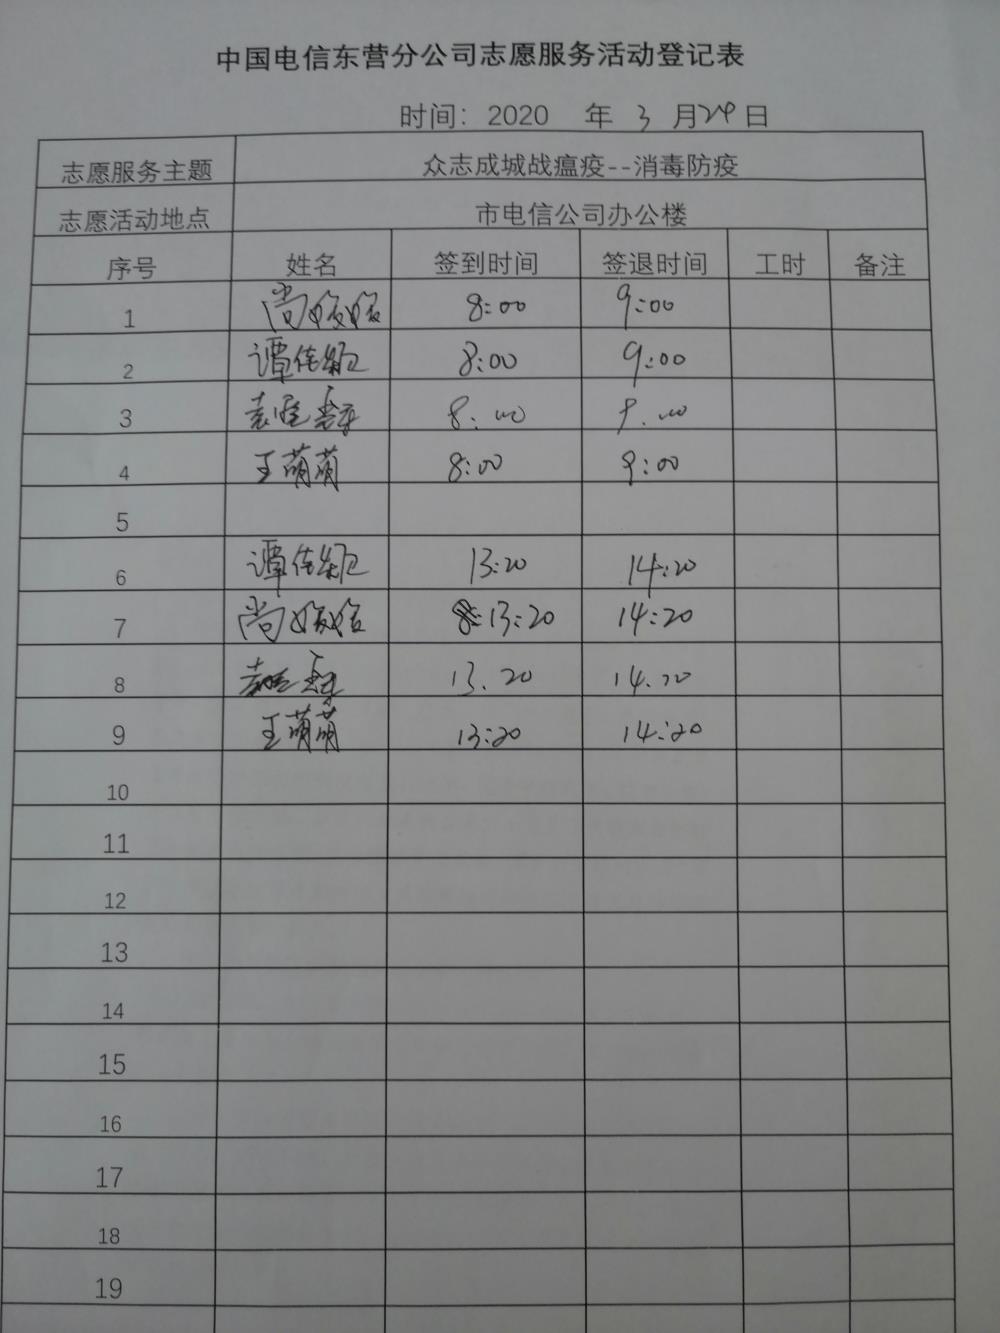 中国电信东营分公司志愿服务活动登记表
时间：2020 年 3 月29日
志愿服务主题 众志成城战瘟疫--消毒防疫
志愿活动地点 市电信公司办公楼
序号 姓名 签到时间 签退时间 工时 备注
1 尚 8:00 9:00
2 谭佳 8:00 9:00
3 袁 8:00 9:00
4 王萌萌 8:00 9:00
5
6 谭佳 13:20 14:20
7 尚 13:20 14:20
8 袁 13.20 14.20
9 王萌萌 13:20 14:20
10
11
12
13
14
15
16
17
18
19